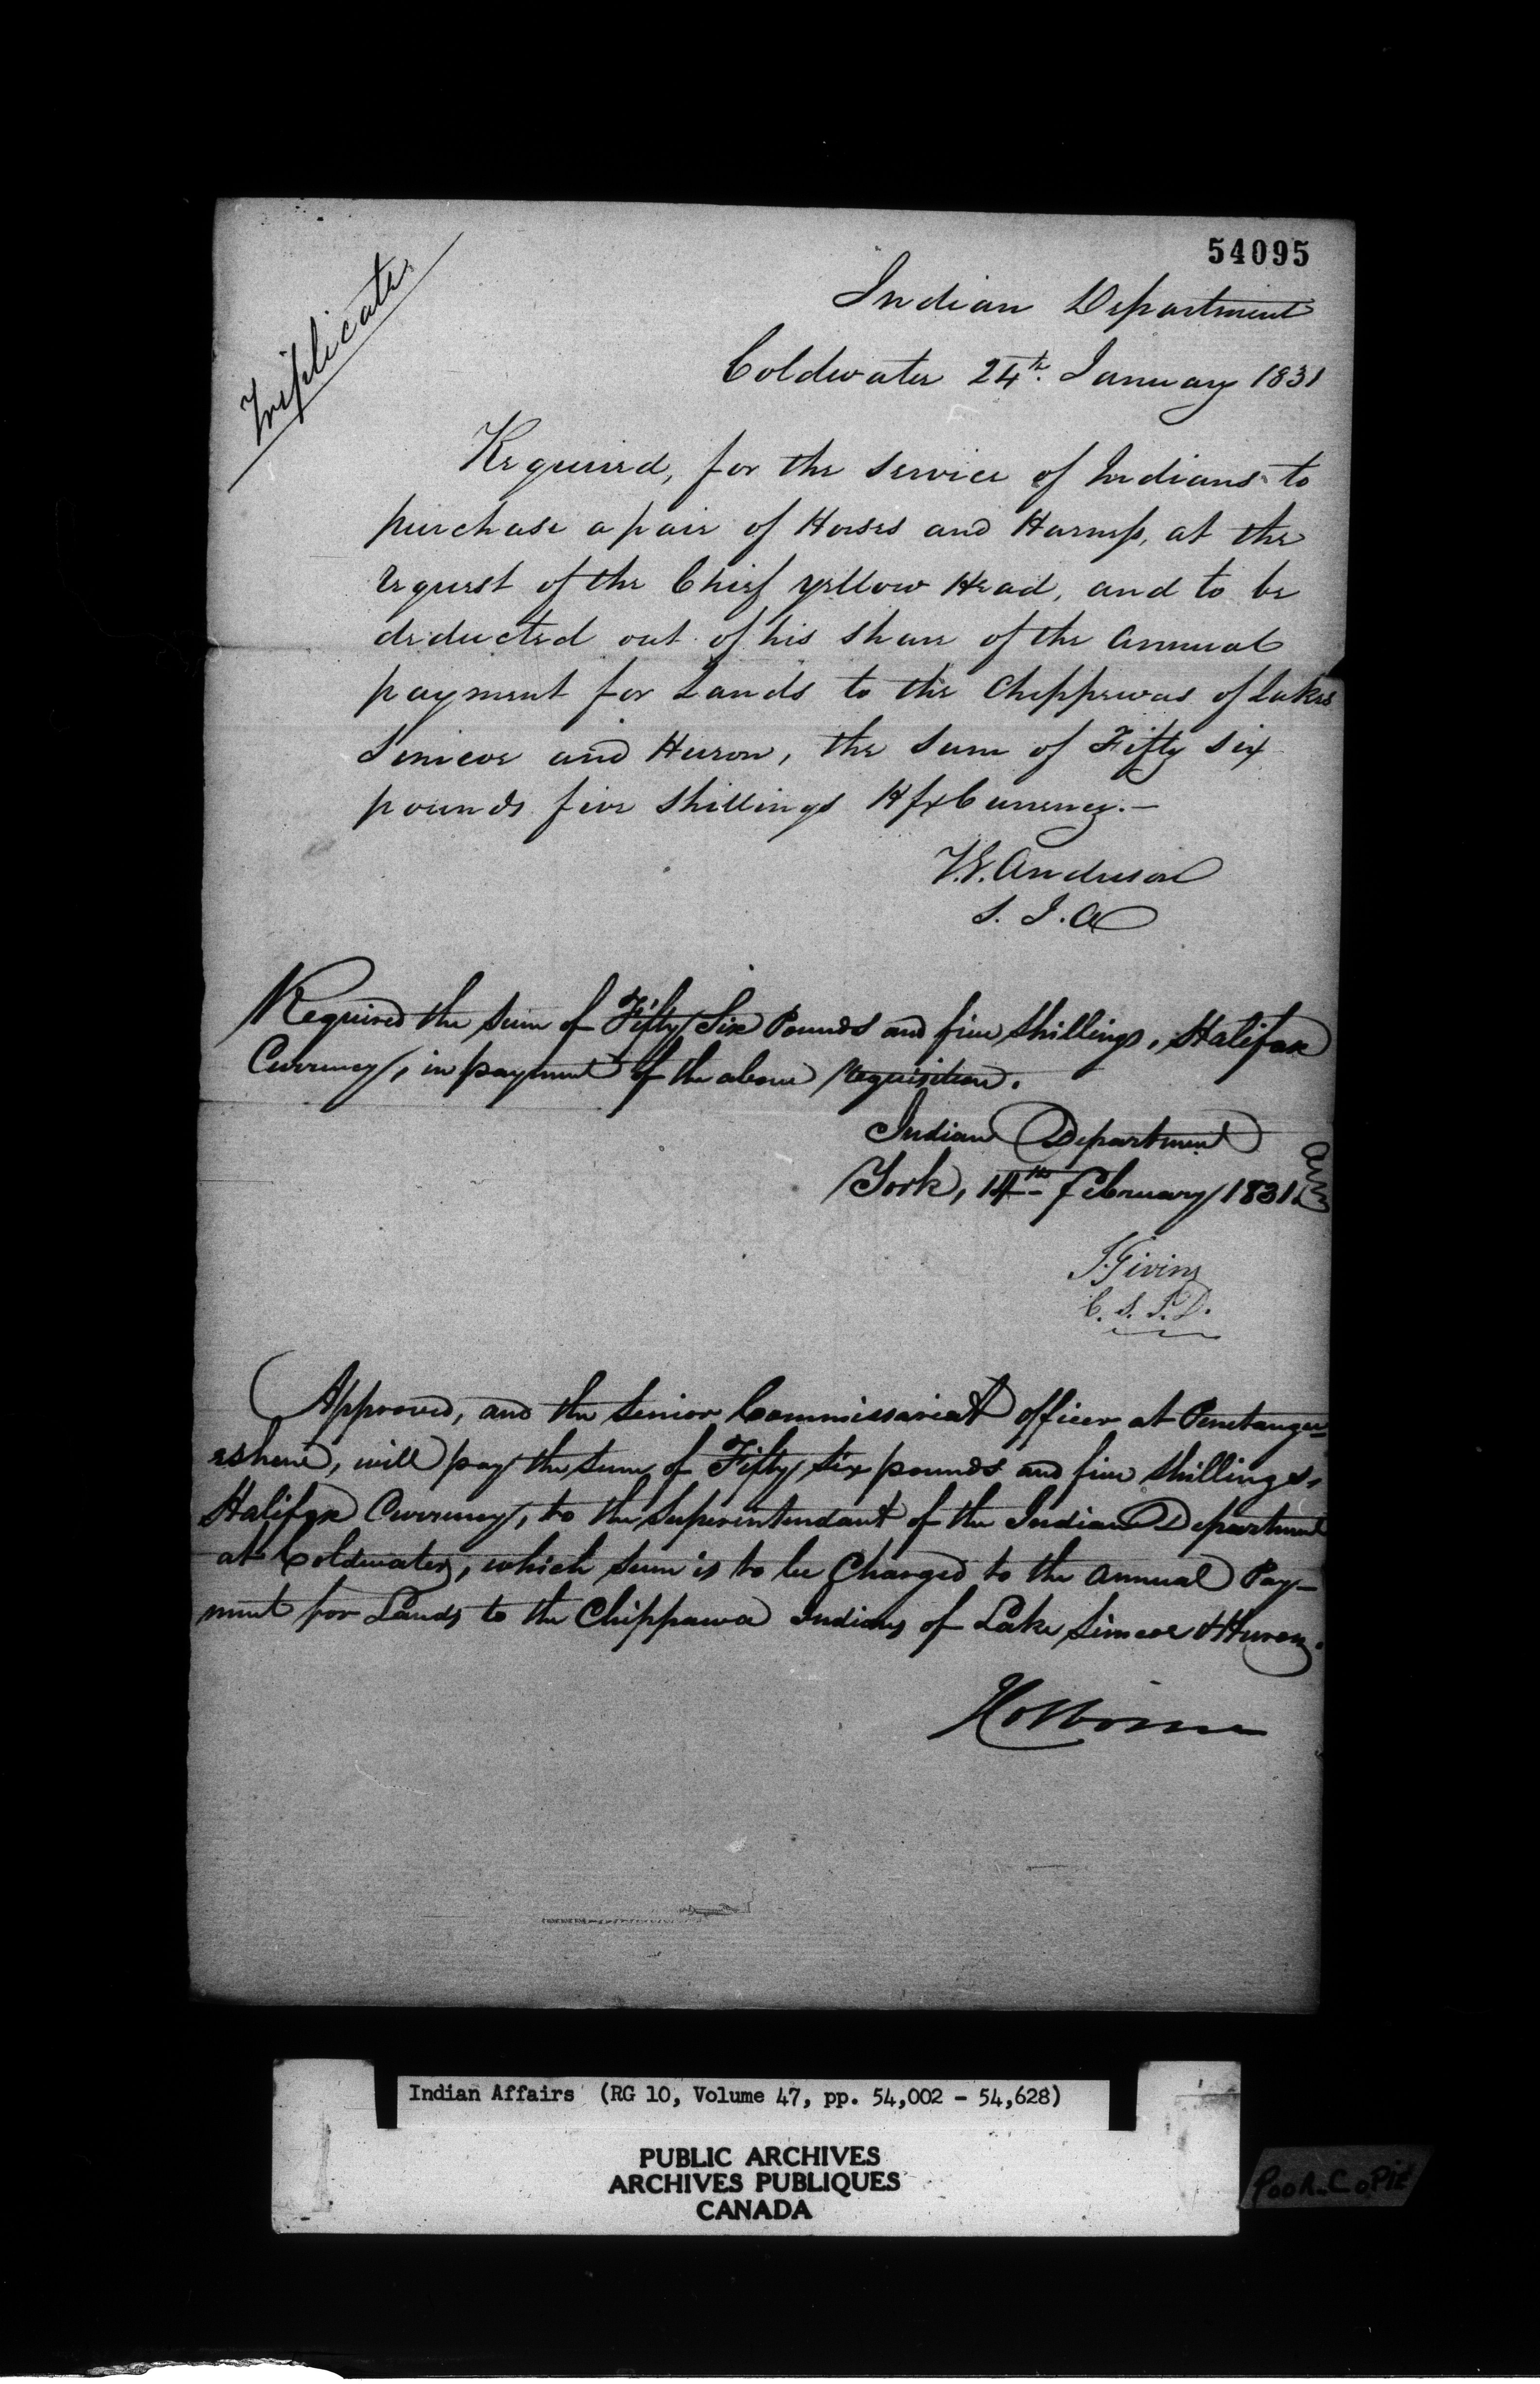 54095
Triplicate
Indian Department
Coldwater 24th. January 1831
Required, for the service of Indians to
purchase a pair of Horses and Harness, at the
request of the Chief Yellow Head, and to be
deducted out of his share of the annual
payment for Lands to the Chippewas of Lakes
Simcoe and Huron, the sum of Fifty six
pounds five shillings Hfx Currency.—
T.G. Anderson
S. I. A
Required the sum of Fifty Six Pounds and five shillings, Halifax
Currency, in payment of the above requisition.
Indian Department
York, 14th February 1831.
J. Givins
C. S. I. D.
Approved, and the Senior Commissariat officer at Penetangu-
ishene, will pay the sum of Fifty six pounds and five shillings,
Halifax Currency, to the Superintendant of the Indian Department
at Coldwater, which sum is to be Charged to the Annual Pay-
ment for Lands to the Chippawa Indians of Lake Simcoe & Huron.
J Colborne
Indian Affairs (RG 10, Volume 47, pp. 54,002 - 54,628)
PUBLIC ARCHIVES
ARCHIVES PUBLIQUES
CANADA
POOR COPIE